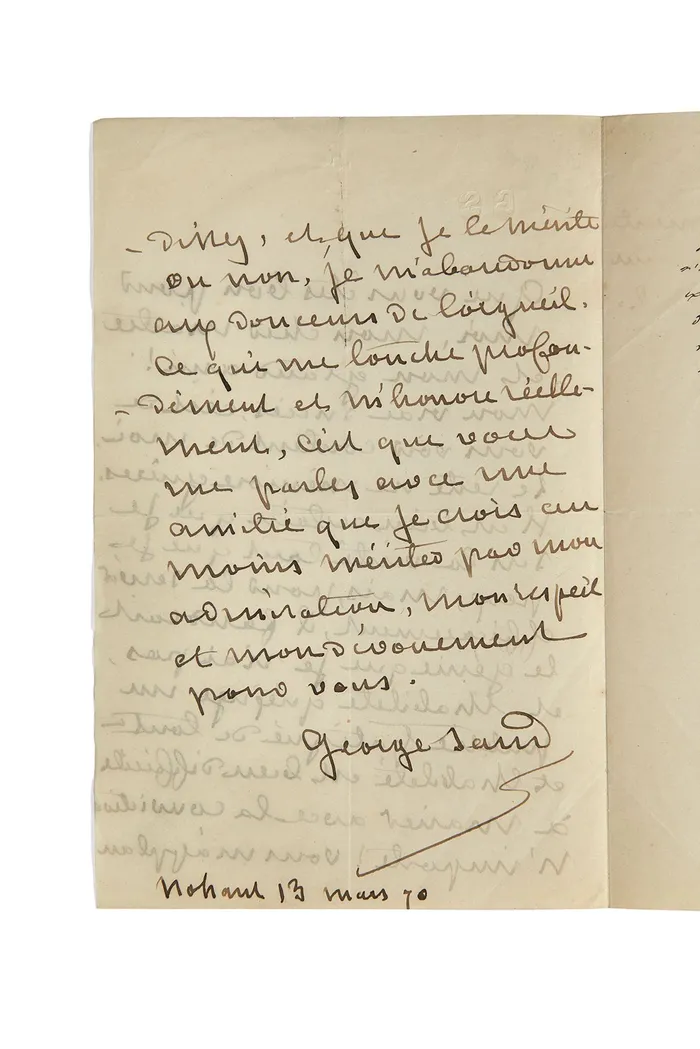 - dissez, et que je le mérite
ou non, je m'abandonne
aux douceurs de l'orgueil.
Ce qui me touche profon-
- dément et m'honore réelle-
ment, c'est que vous
me parlez avec une
amitié que je crois au
moins méritée par mon
admiration, mon respect
et mon dévouement
pour vous.
George Sand
Nohant 13 mars 70